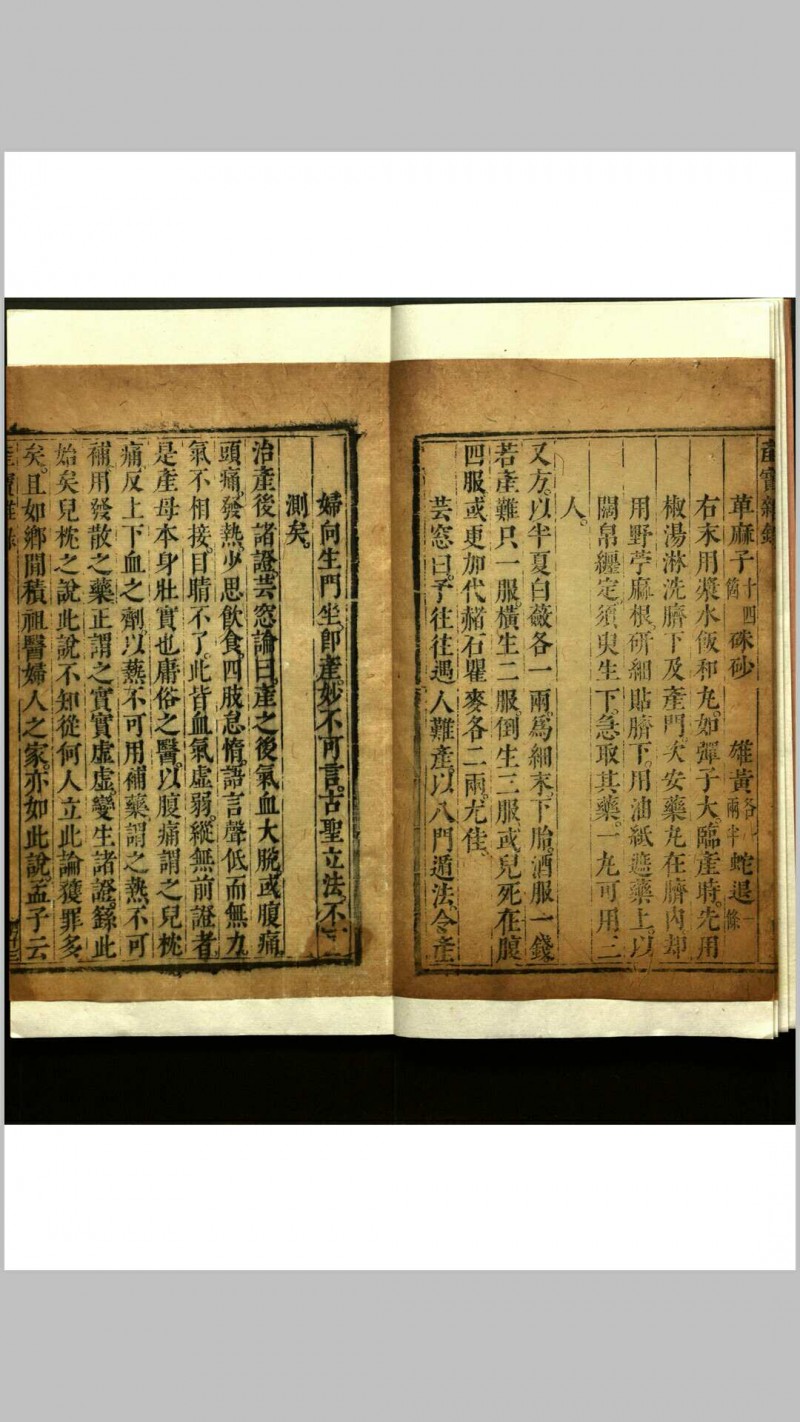 產寶雜錄
萆麻子十四箇硃砂 雄黃各一兩半蛇退一條
右末用漿水飯和丸。如彈子大。臨產時。先用
椒湯淋洗臍下及產門。次安藥丸在臍內。却
用野苧麻根。研細貼臍下。用油紙遮藥上。以
闊帛纏定。須臾生下。急取其藥。一丸可用三
人。
又方。以半夏白薇各一兩。爲細末。下胎。酒服一錢
若產難只一服。橫生二服。倒生三服。或兒死在腹
四服。或更加代赭石瞿麥各二兩。尤佳。
芸窓曰。予往往遇人難產。以八門遁法。令產
婦向生門坐。即產。妙不可言。古聖立法。不可
測矣。
治產後諸證。芸窓論曰。產之後氣血大脫。或腹痛
頭痛。發熱。少思飲食。四肢怠惰。語言聲低而無力。
氣不相接。目睛不了。此皆血氣虛弱。縱無前證者
是產母本身壯實也。庸俗之醫。以腹痛謂之兒枕
痛。反上下血之劑。以熱不可用補藥。謂之熱不可
補。用發散之藥。正謂之實實虛虛。變生諸證。錄此
始矣。兒枕之說。此說不知從何人立此論。獲罪多
矣。且如鄉閒積祖醫婦人之家。亦如此說。孟子云
產寶雜錄